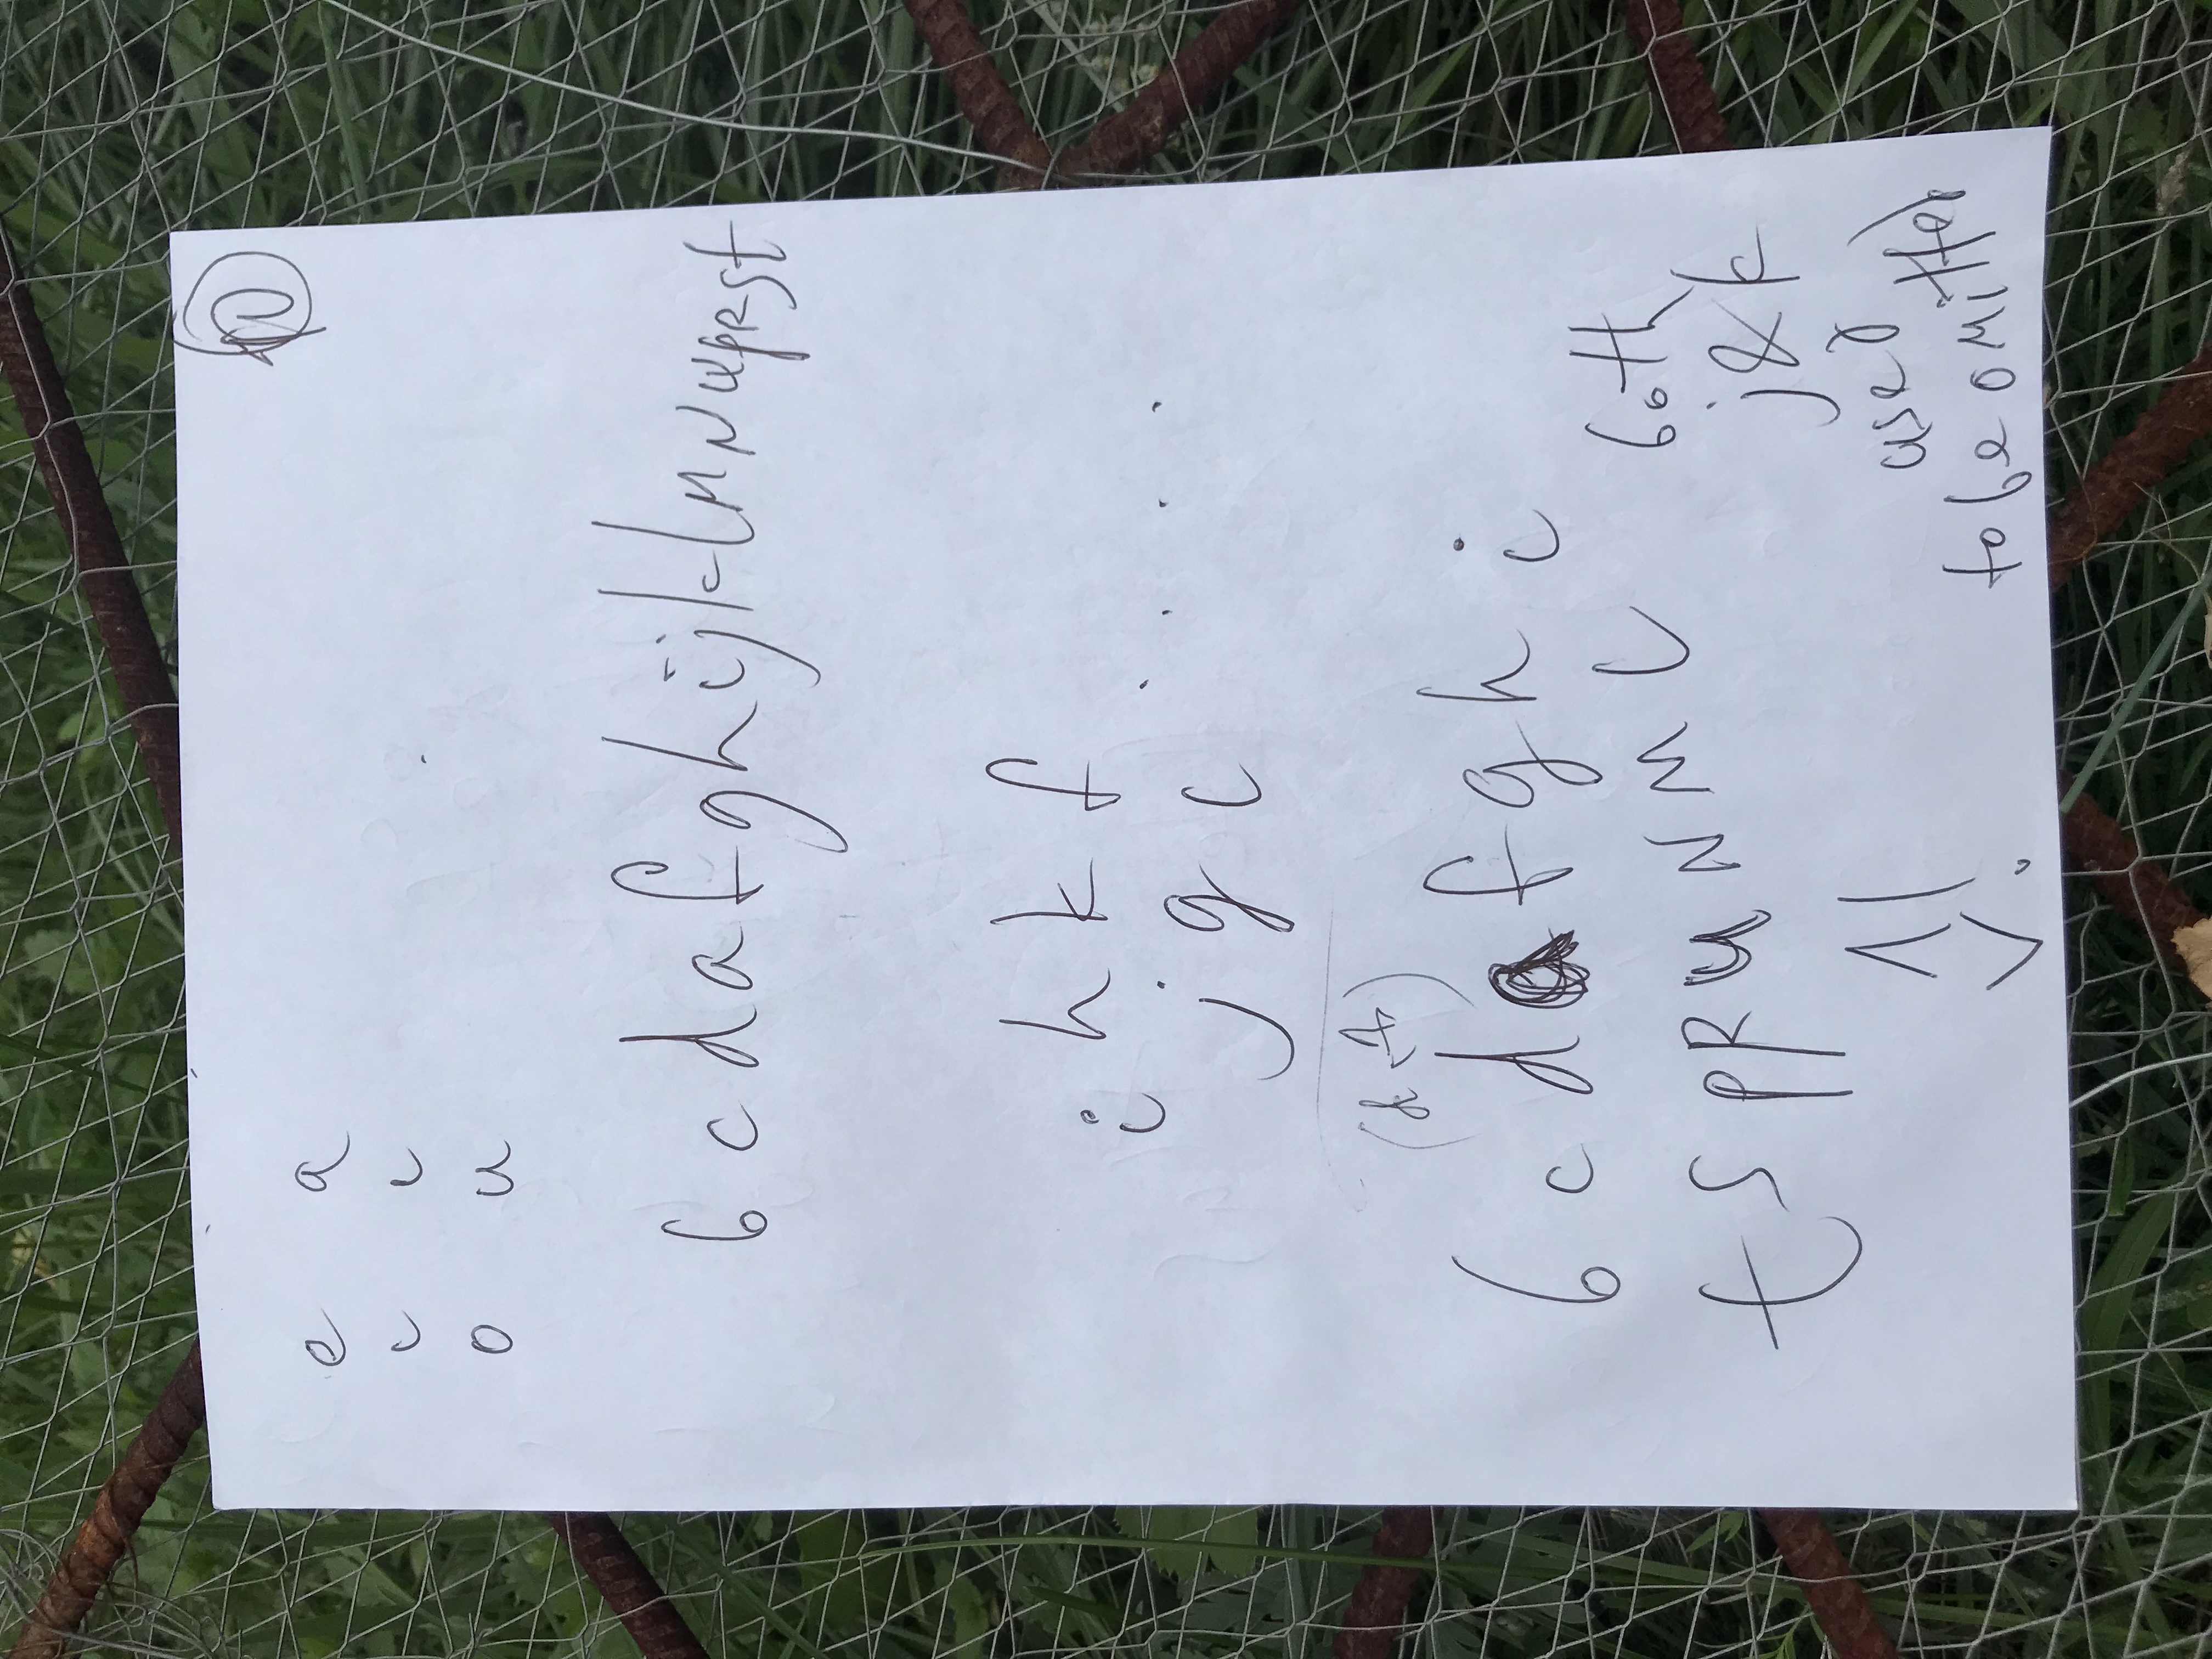 10
e a
i i
o u
b c d a f g h i j k l M N u p R s t
i h k f
j g c . . . .
b c d a f g h i
t s p R u N M L
both
j & k
used
to be omitted